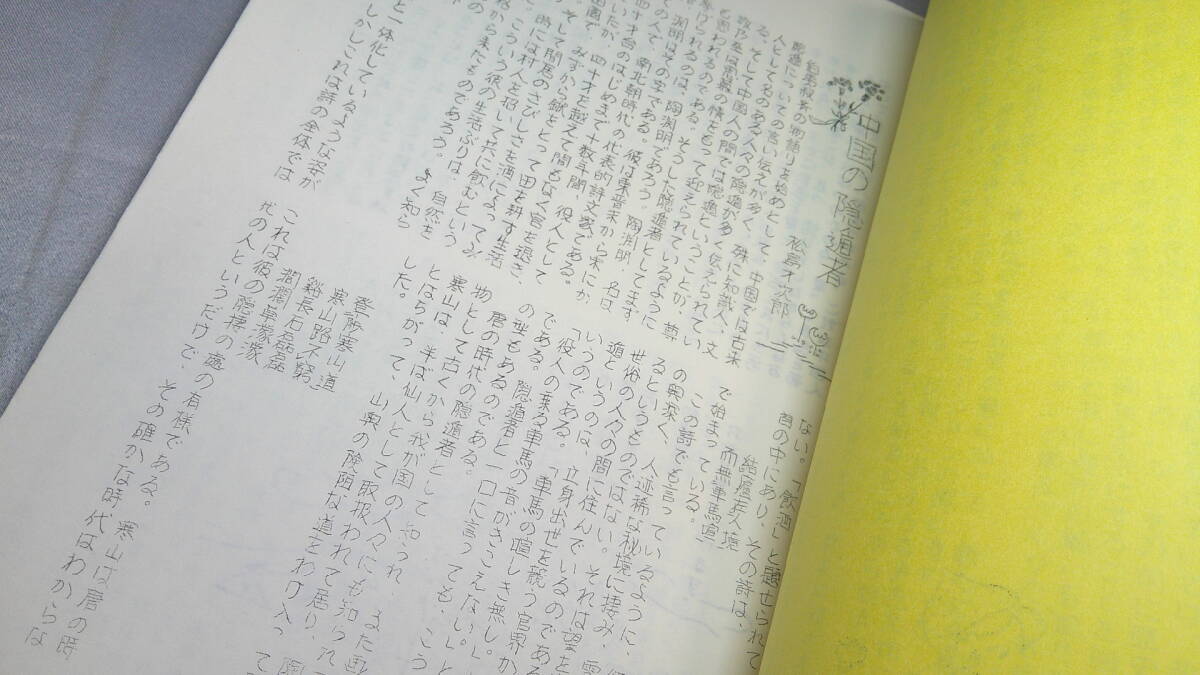 中国の隠遁者
松島才次郎
伯夷叔斉の物語りを始めとして、中国では古来
隠遁についての言い伝えが多く、殊に知識人、文
人として名のある人々の隠遁が多く伝えられてい
る。そして中国人の間では隠遁ということが、尊
敬乃至は思慕の情をもって迎えられているように
も思われるのである。そうした隠遁者としてまず
挙げられるのは、陶渊明であろう。陶渊明、名は
渊明はその字である。彼は東晋末から宋にか
ての人で、南北朝時代の代表的詩文家である。
四十才台のはじめまで十数年間、役人として
いたが、四十才を越えて間もなく官を退き、
田園で、みずから鍬をとって田を耕す生活
そして閑居のさびしさを酒によってみ
時には村人を招いて共に飲むという
こういう彼の生活ぶりは、自然を
から来たものであろう。よく知ら
と一体化しているような姿が
しかしこれは詩の全体では
ない。「飲酒」と題せられて
首の中にあり、その詩は、
結廬在人境
而無車馬喧
で始まっている。
この詩でも言っているように、
の奥深く、人迹稀な秘境に棲み、
るというものではない。それは望を
世俗の人々の間に住んでいるのである
遁というのは、立身出世を競う官界か
いうのである。「車馬の喧しき無し。」
「役人の乗る車馬の音がきこえない。」と
である。隠遁者と一口に言っても、こう
の型もあるのである。
唐の時代の隠遁者として知られ、また画
物として古くから我が国の人々にも知られ
寒山は、半ば仙人として取扱われて居り、
とはちがって、山奥の険阻な道をわけ入っ
した。
登陟寒山道
寒山路不窮
谿長石磊磊
澗濶草濛濛
これは彼の隠棲の處の有様である。寒山は唐の時
代の人というだけで、その確かな時代はわからな